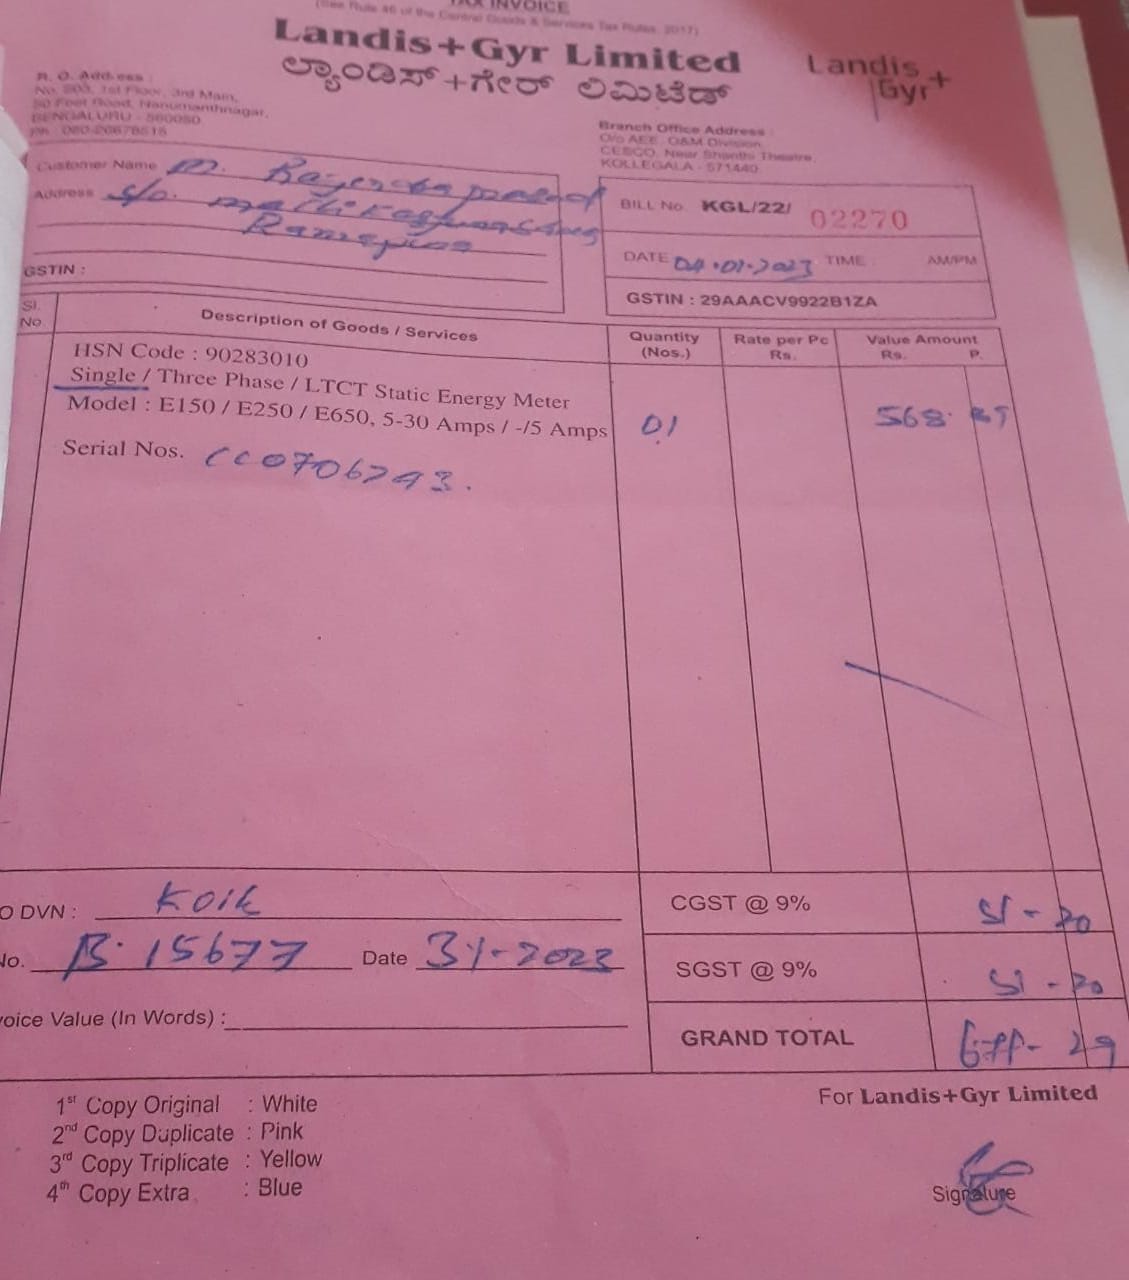 TAX INVOICE
(See Rule 46 of the Central Goods & Services Tax Rules, 2017)
Landis+Gyr Limited
ಲ್ಯಾಂಡಿಸ್+ಗೇರ್ ಲಿಮಿಟೆಡ್
Landis
Gyr+
R. O. Address :
No. 503, 1st Floor, 3rd Main,
50 Feet Road, Hanumanthnagar,
BENGALURU - 560050
Ph : 080-26678515
Branch Office Address :
O/o AEE, O&M Division,
CESCO, Near Shanthi Theatre,
KOLLEGALA - 571440
Customer Name M.
Address S/o.
GSTIN :
BILL No. KGL/22/ 02270
DATE 04.01.2023 TIME : AM/PM
GSTIN : 29AAACV9922B1ZA
Sl. No. Description of Goods / Services Quantity (Nos.) Rate per Pc Rs. Value Amount Rs. P.
HSN Code : 90283010
Single / Three Phase / LTCT Static Energy Meter
Model : E150 / E250 / E650, 5-30 Amps / -/5 Amps 01 568
Serial Nos.
O DVN :
No. B. 15677 Date
voice Value (In Words) :
CGST @ 9%
SGST @ 9%
GRAND TOTAL
1st Copy Original : White
2nd Copy Duplicate : Pink
3rd Copy Triplicate : Yellow
4th Copy Extra : Blue
For Landis+Gyr Limited
Signature